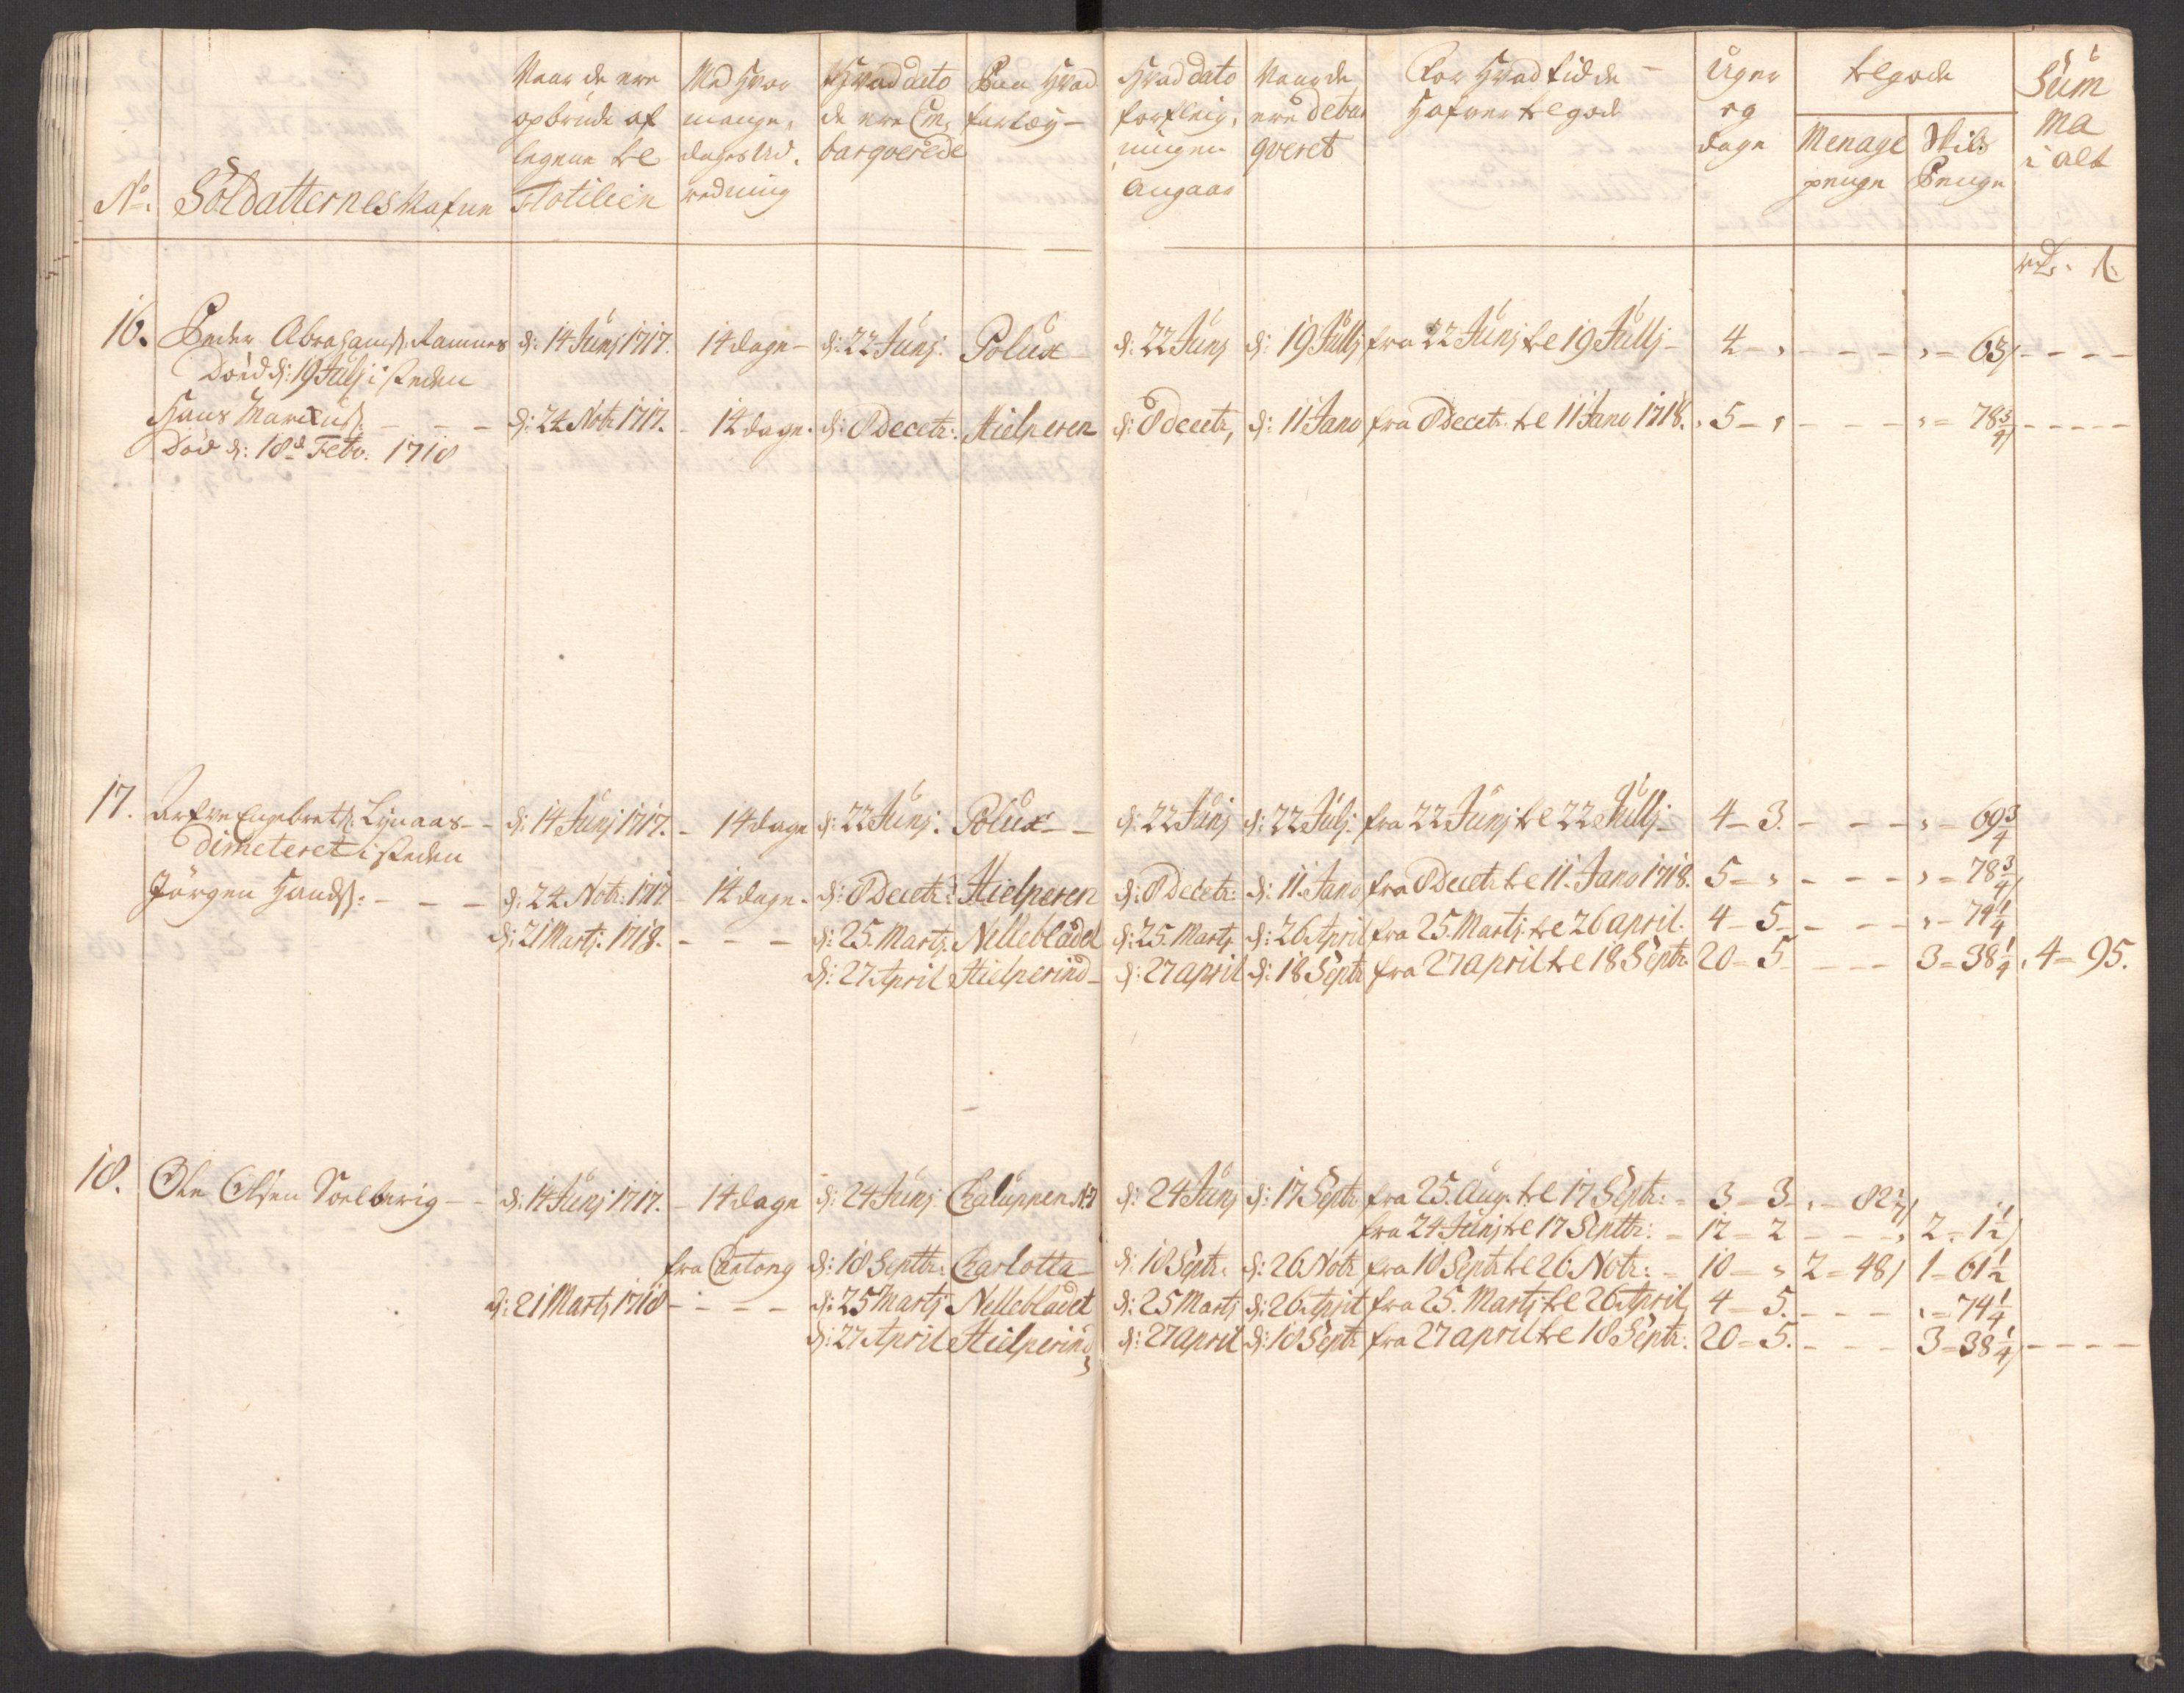 No. Soldatternes Nafne | Naar de ere opbrude af legene til Flotilien | Med Hvor mange dages Ud redning | Hvad dato de ere Em barqverede | Paa Hvad fartøy | Hvad dato forfleigningen Angaar | Naar de ere debar qveret | For Hvad tid de Hafver til gode | Uger og dage | til gode Menage penge | Skibs Penge | Summa i alt
rdr. s.
16. Peder Abrahams. Ramnes d: 14 Junj 1717. 14 dage - d: 22 Junj: Polux d: 22 Junj d: 19 Jullj fra 22 Junj til 19 Jullj - 4 - , - - - , = 63/ - - - -
Döed d: 19 Julj i steden
Hans Marcus: - - - d: 24 Notr 1717. - 14 dage. d: 8 Decetr: Hielperen d: 8 decetr, d: 11 Jano fra 8 Decetr. til 11 Jano 1718. 5 - , - - - , = 78 3/4/ - - - -
Död d: 18d Febr. 1718
17. Engebrets: Lynaas - - d: 14 Junj 1717. - 14 dage d: 22 Junj. Polux - - d: 22 Junj d: 22 Julj: fra 22 Junj til 22 Jullj - 4 - 3. - - - , = 69 3/4
Dimeteret i steden
Jörgen Hands: - - - d: 24 Notr: 1717 - 14 dage. d: 8 Decetr: Hielperen d: 8 Decetr: d: 11. Jano fra 8 Decetr til 11. Jano 1718. 5 = , - - - , = 78 3/4/
d: 21 Martj: 1718. - - - d: 25. Martj. Nellebladet d: 25. Martj d: 26 April fra 25. Martj. til 26 april. 4 - 5 - - - , - 74 1/4
d: 27 April Hielperind - d: 27 april d: 18 Septr fra 27 april til 18 Septr. 20 = 5 - - - 3 = 38 1/4 , 4 = 95.
18. Ole Olsen Soelberig - - d: 14 Junj 1717. - 14 dage d: 24 Junj Chaluppen N: 7 d: 24 Junj d: 17 Septr fra 25. Aug. til 17 Septr: = 3 = 3 - , = 82 2/7/
fra 24 Junj til 17 Septtr: = 12 = 2 - - - , 2 = 1 1/2/
fra d: 18 Septtr: Charlotta d: 18 Septr: d: 26 Notr fra 18 Septr til 26 Notr: = 10 = , 2 = 48/ 1 = 61 1/2
d: 21 Martj 1718 - - - - d: 25 Martj Nellebladet d: 25 Martj d: 26 April fra 25. Martj til 26 April, 4 = 5. - - - , = 74 1/4
d: 27 April Hielperind, d: 27 april d: 18 Septr fra 27 april til 18 Septr: 20 = 5. - - - 3 = 38 1/4/ - - - -